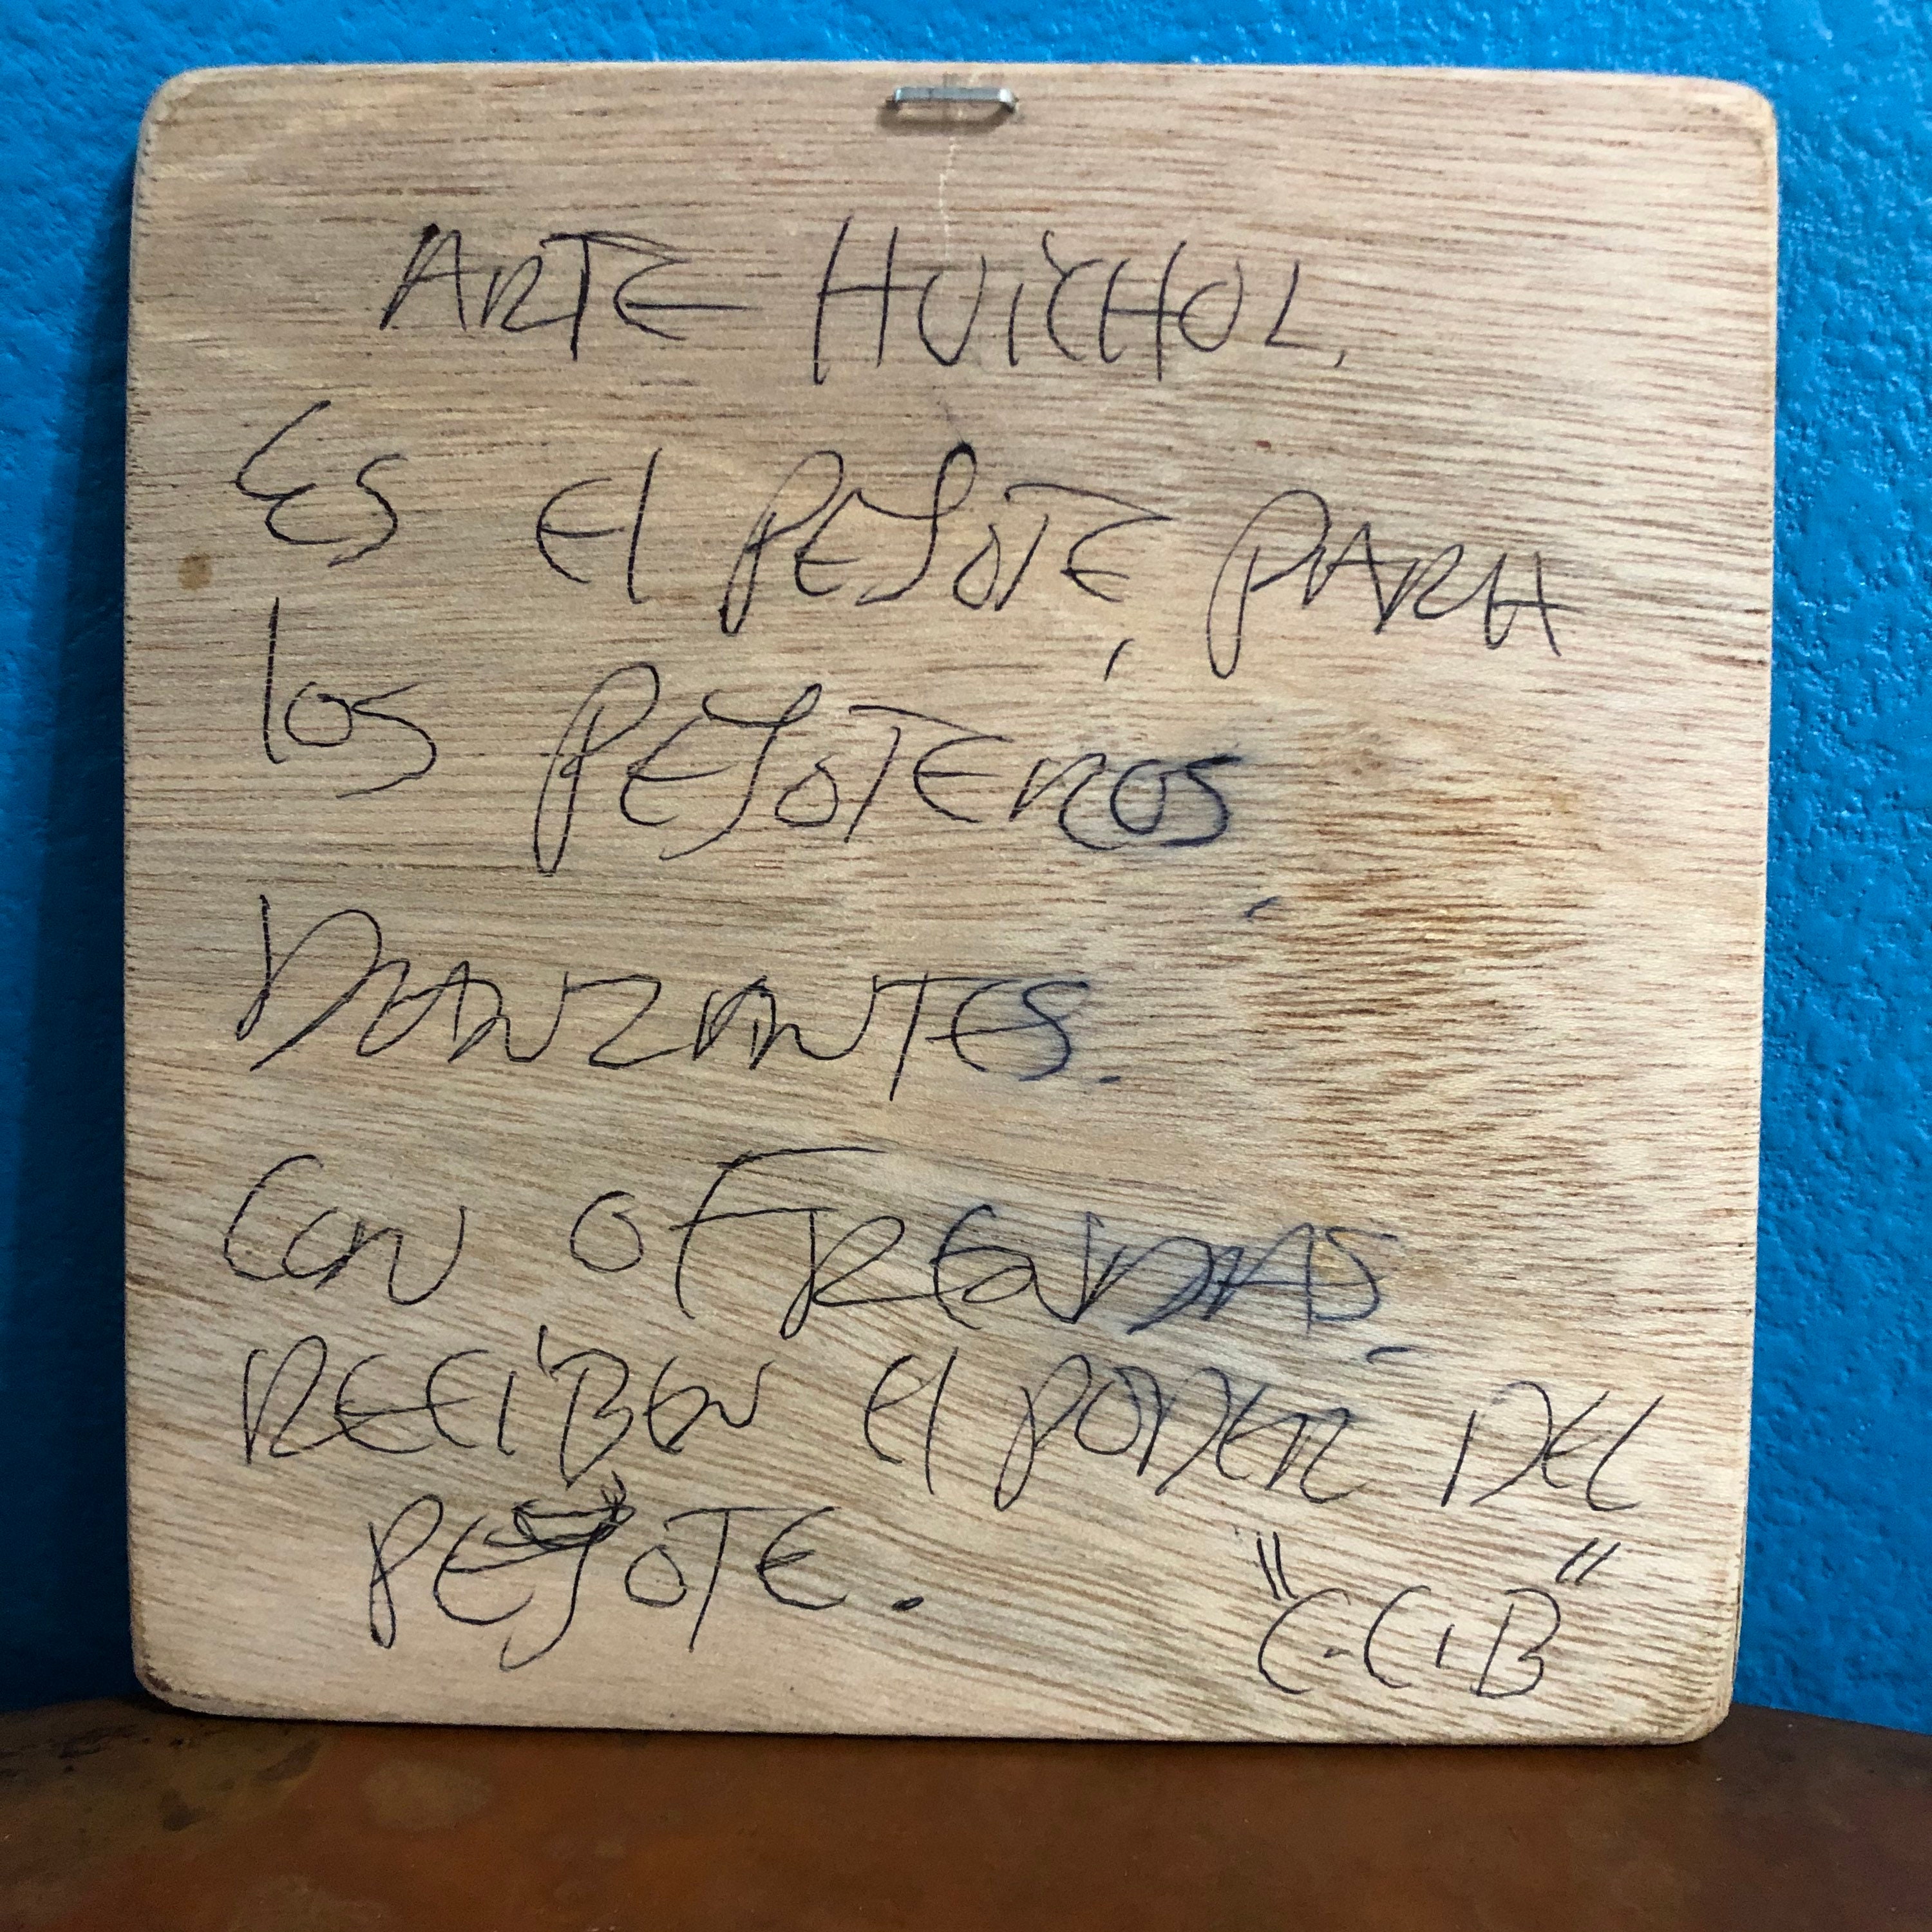 ARTE HUICHOL.
Es El PEJOTE, PARA
los PEJOTEROS.
DANZANTES.
Con OFRENDAS.
RECIBEN El PODER DEL
PEJOTE.
"C.C.B"